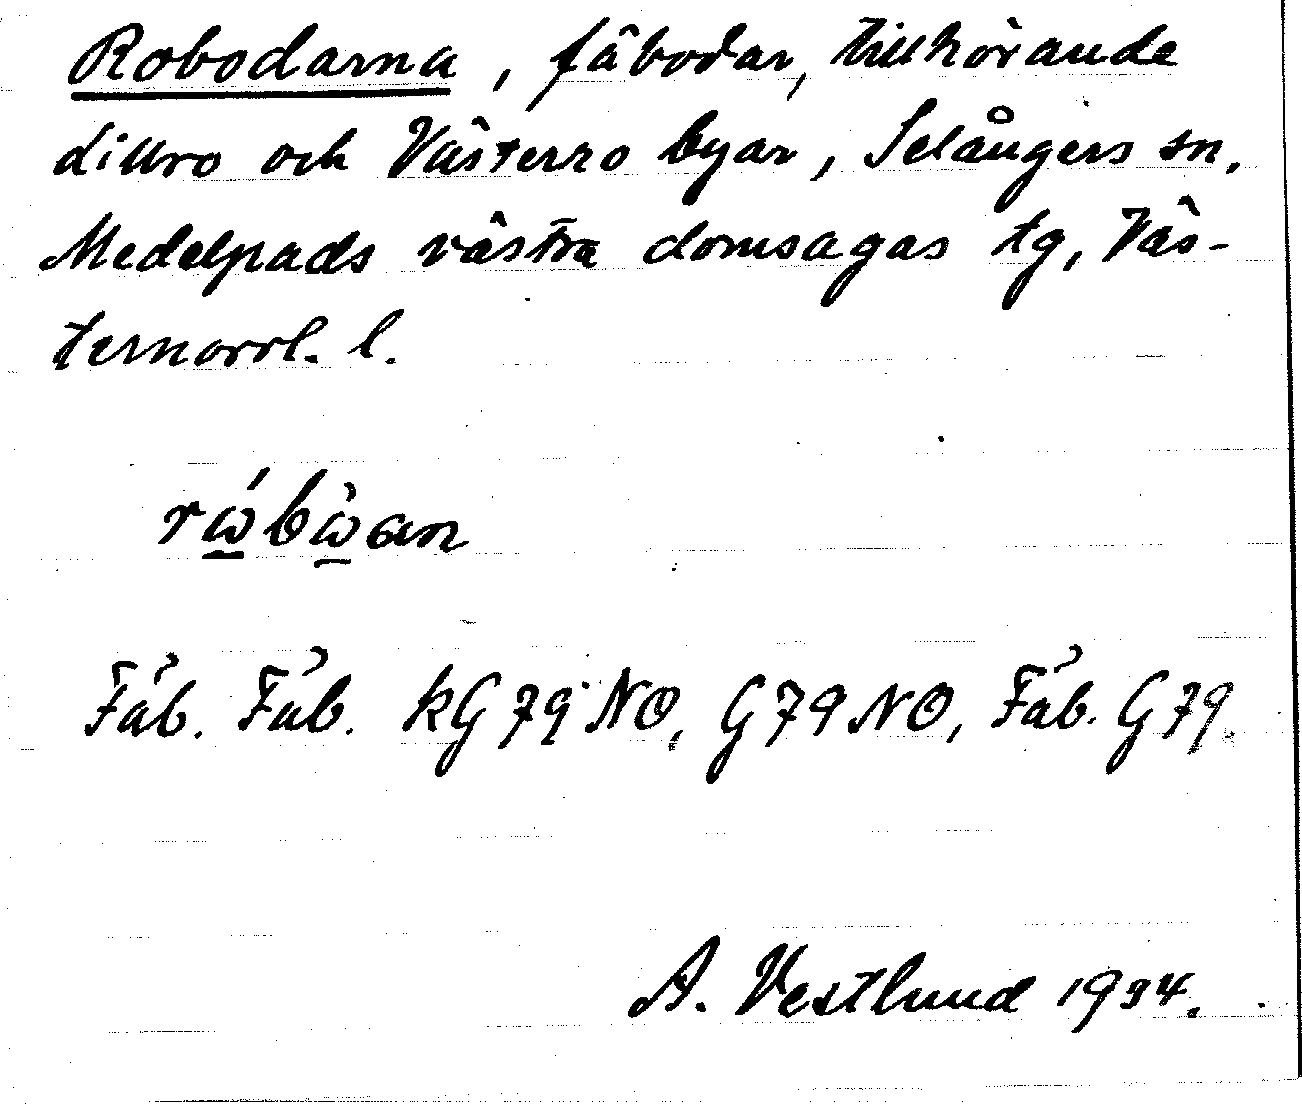 Robodarna, fäbodar, tillhörande
Lillro och Västerro byar, Selångers sn,
Medelpads västra domsagas tg, Väs-
ternorrl. l.
rώbὼan
Fäb. Fäb. kG 79 NO, G 79 NO, Fäb. G 79.
A. Vestlund 1934.